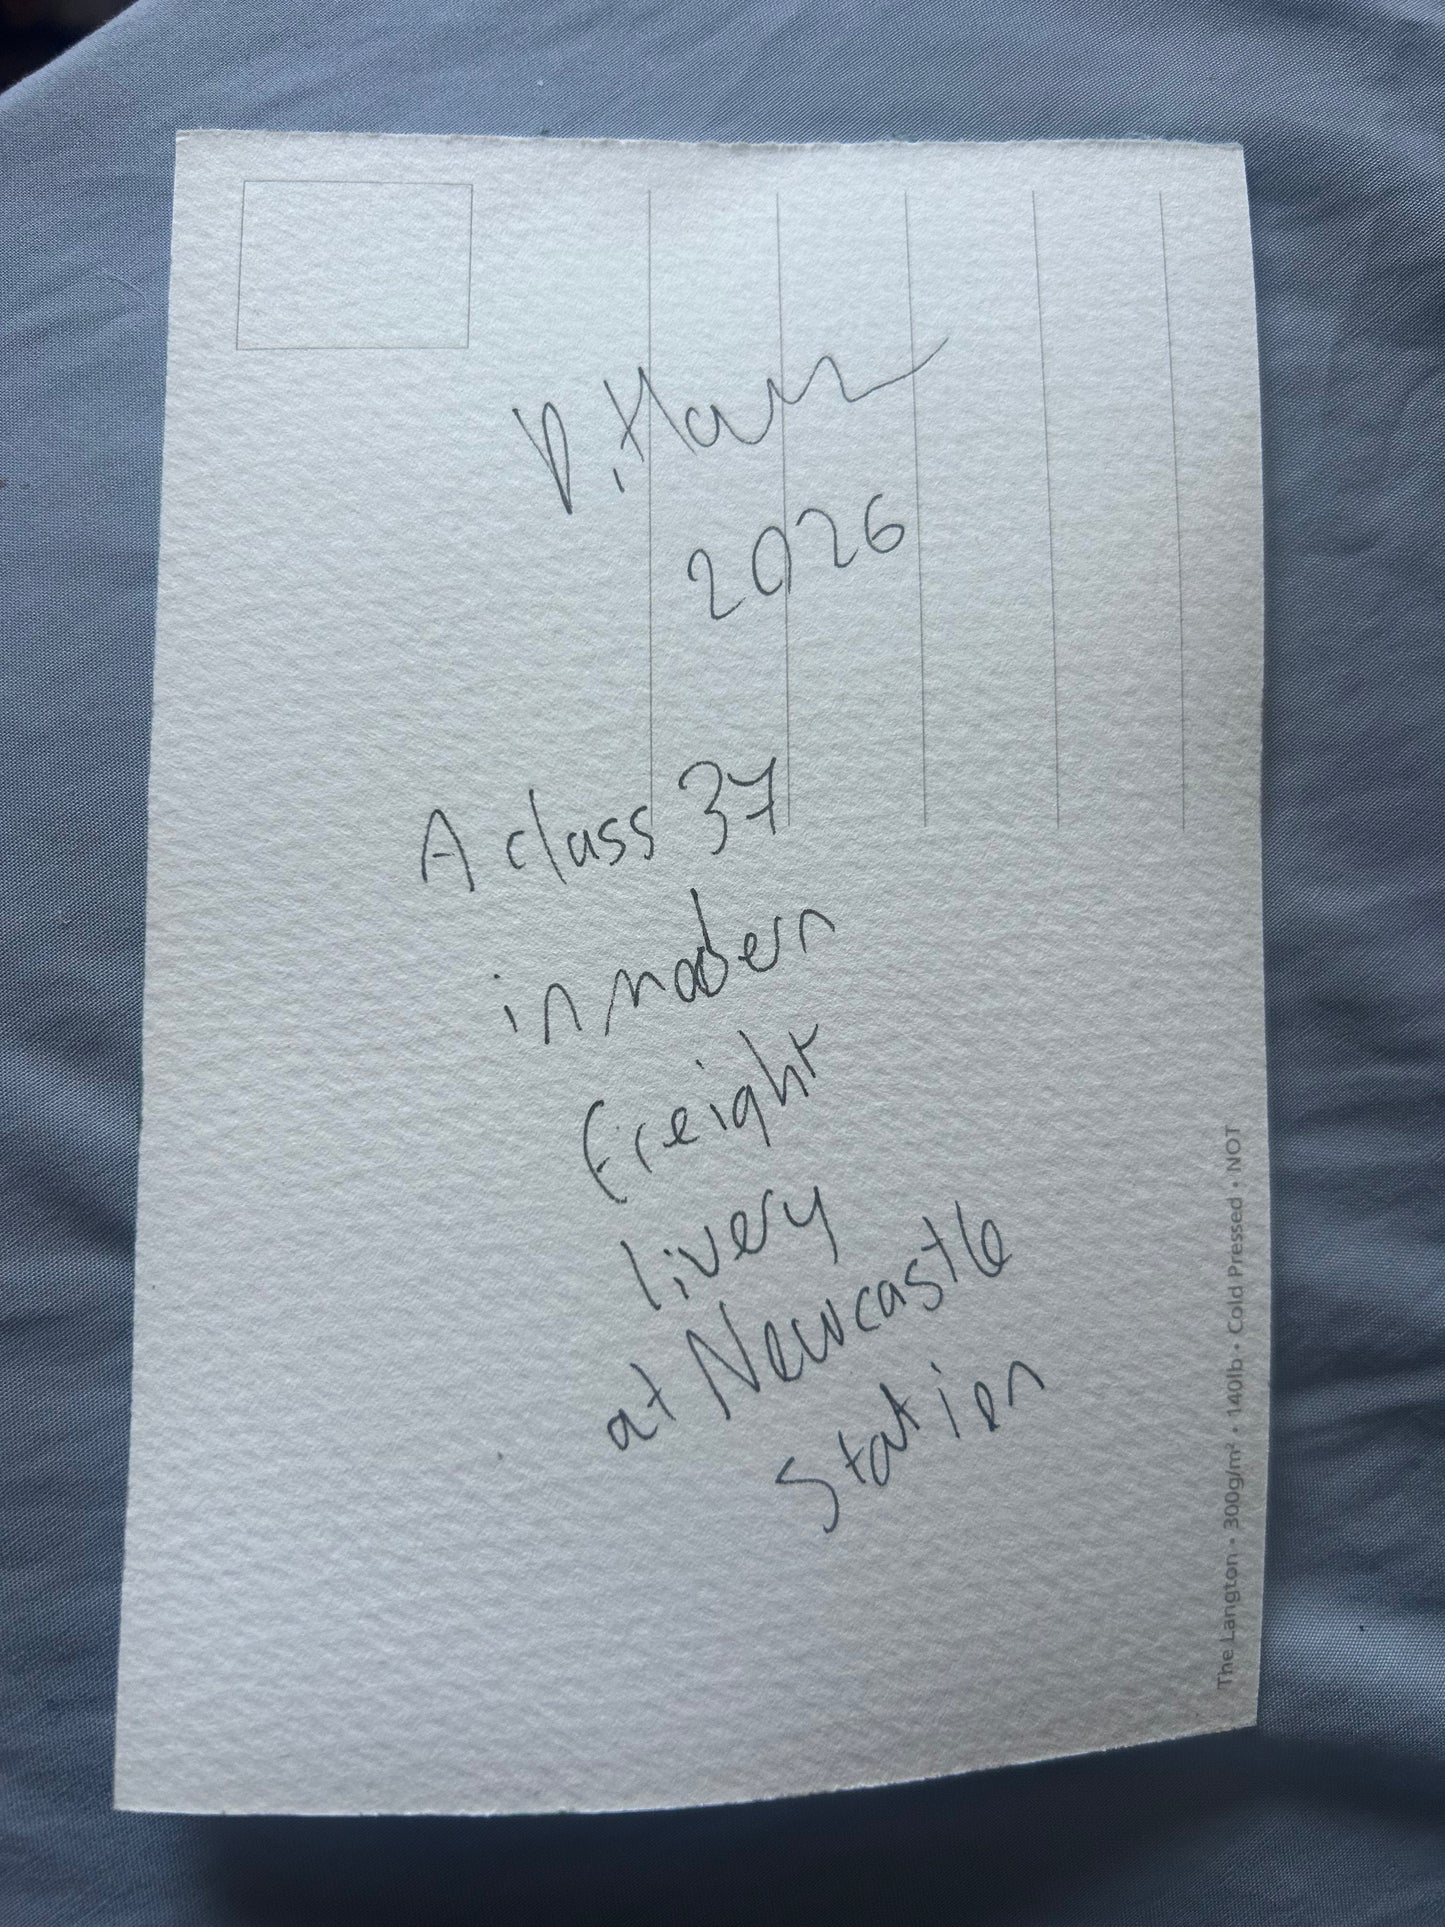 2026
A class 37
in modern
freight
livery
at Newcastle
Station
The Langton • 300g/m² • 140lb • Cold Pressed • NOT